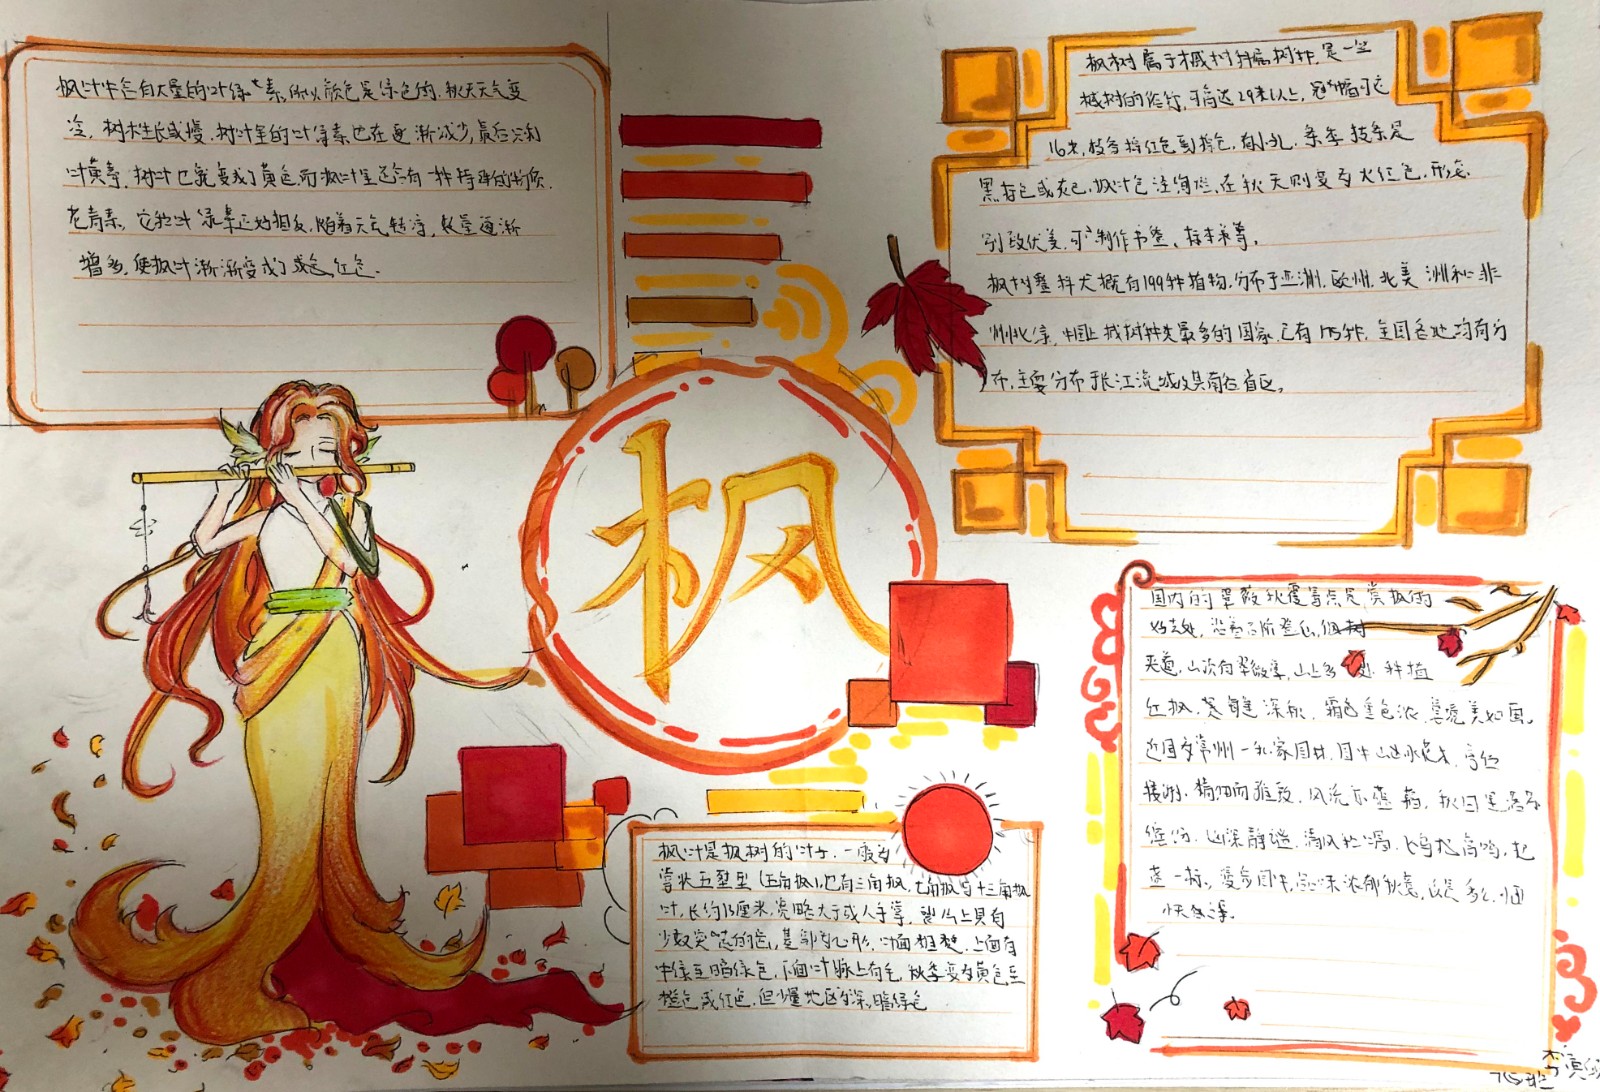 枫叶中含有大量的叶绿素,所以颜色是绿色的.秋天天气变
冷,树木生长减慢,树叶里的叶绿素也在逐渐减少,最后只剩
叶黄素,树叶也就变成了黄色,而枫叶里还含有一种特殊的物质.
花青素,它和叶绿素正好相反,随着天气转凉,数量逐渐
增多,使枫叶渐渐变成了红色.
枫树属于槭树科属树种,是一些
槭树的俗称,可高达29米以上,冠幅可达
16米,枝条棕红色到棕色,有小孔.冬季枝条是
黑棕色或灰色,枫叶色泽绚烂,在秋天则变为火红色,形态
别致优美,可制作书签、标本等.
枫树整科大概有199种植物,分布于亚洲,欧州,北美洲和非
州北缘,中国是槭树种类最多的国家,已有175种,全国各地均有分
布,主要分布于长江流域及其南各省区.
枫
国内的翠薇秋霞等点是赏枫的
好去处,沿登高阶登山,枫树
夹道,山次有翠微亭,山上多处种植
红枫,茎健深秋,霜色重色浓,景境美如画.
近园为常州一私家园林,园中山水花木,亭
楼榭,精细而雅致,风光
幽深静谧,清风
漫步园中,品味浓郁秋意,
枫叶是枫树的叶子.一般为
掌状五裂型(五角枫),也有三角枫,七角枫与十三角枫
叶,长约13厘米,宽略大于或人手掌,裂片上具有
少数突出的齿,基部为心形,叶面粗糙,上面为
中绿至暗绿色,下面叶脉上有毛,秋季变为黄色至
橙色或红色,但少量地区为深暗绿色